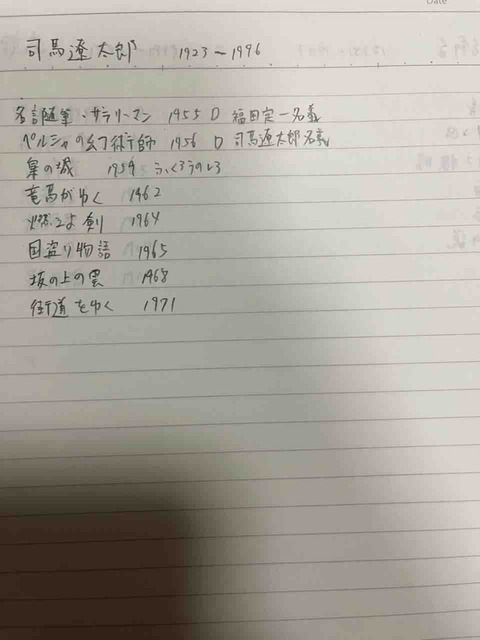 Date
司馬遼太郎 1923～1996
名言随筆・サラリーマン 1955 D 福田定一名義
ペルシャの幻術師 1956 D 司馬遼太郎名義
梟の城 1959 ふくろうのしろ
竜馬がゆく 1962
燃えよ剣 1964
国盗り物語 1965
坂の上の雲 1968
街道をゆく 1971